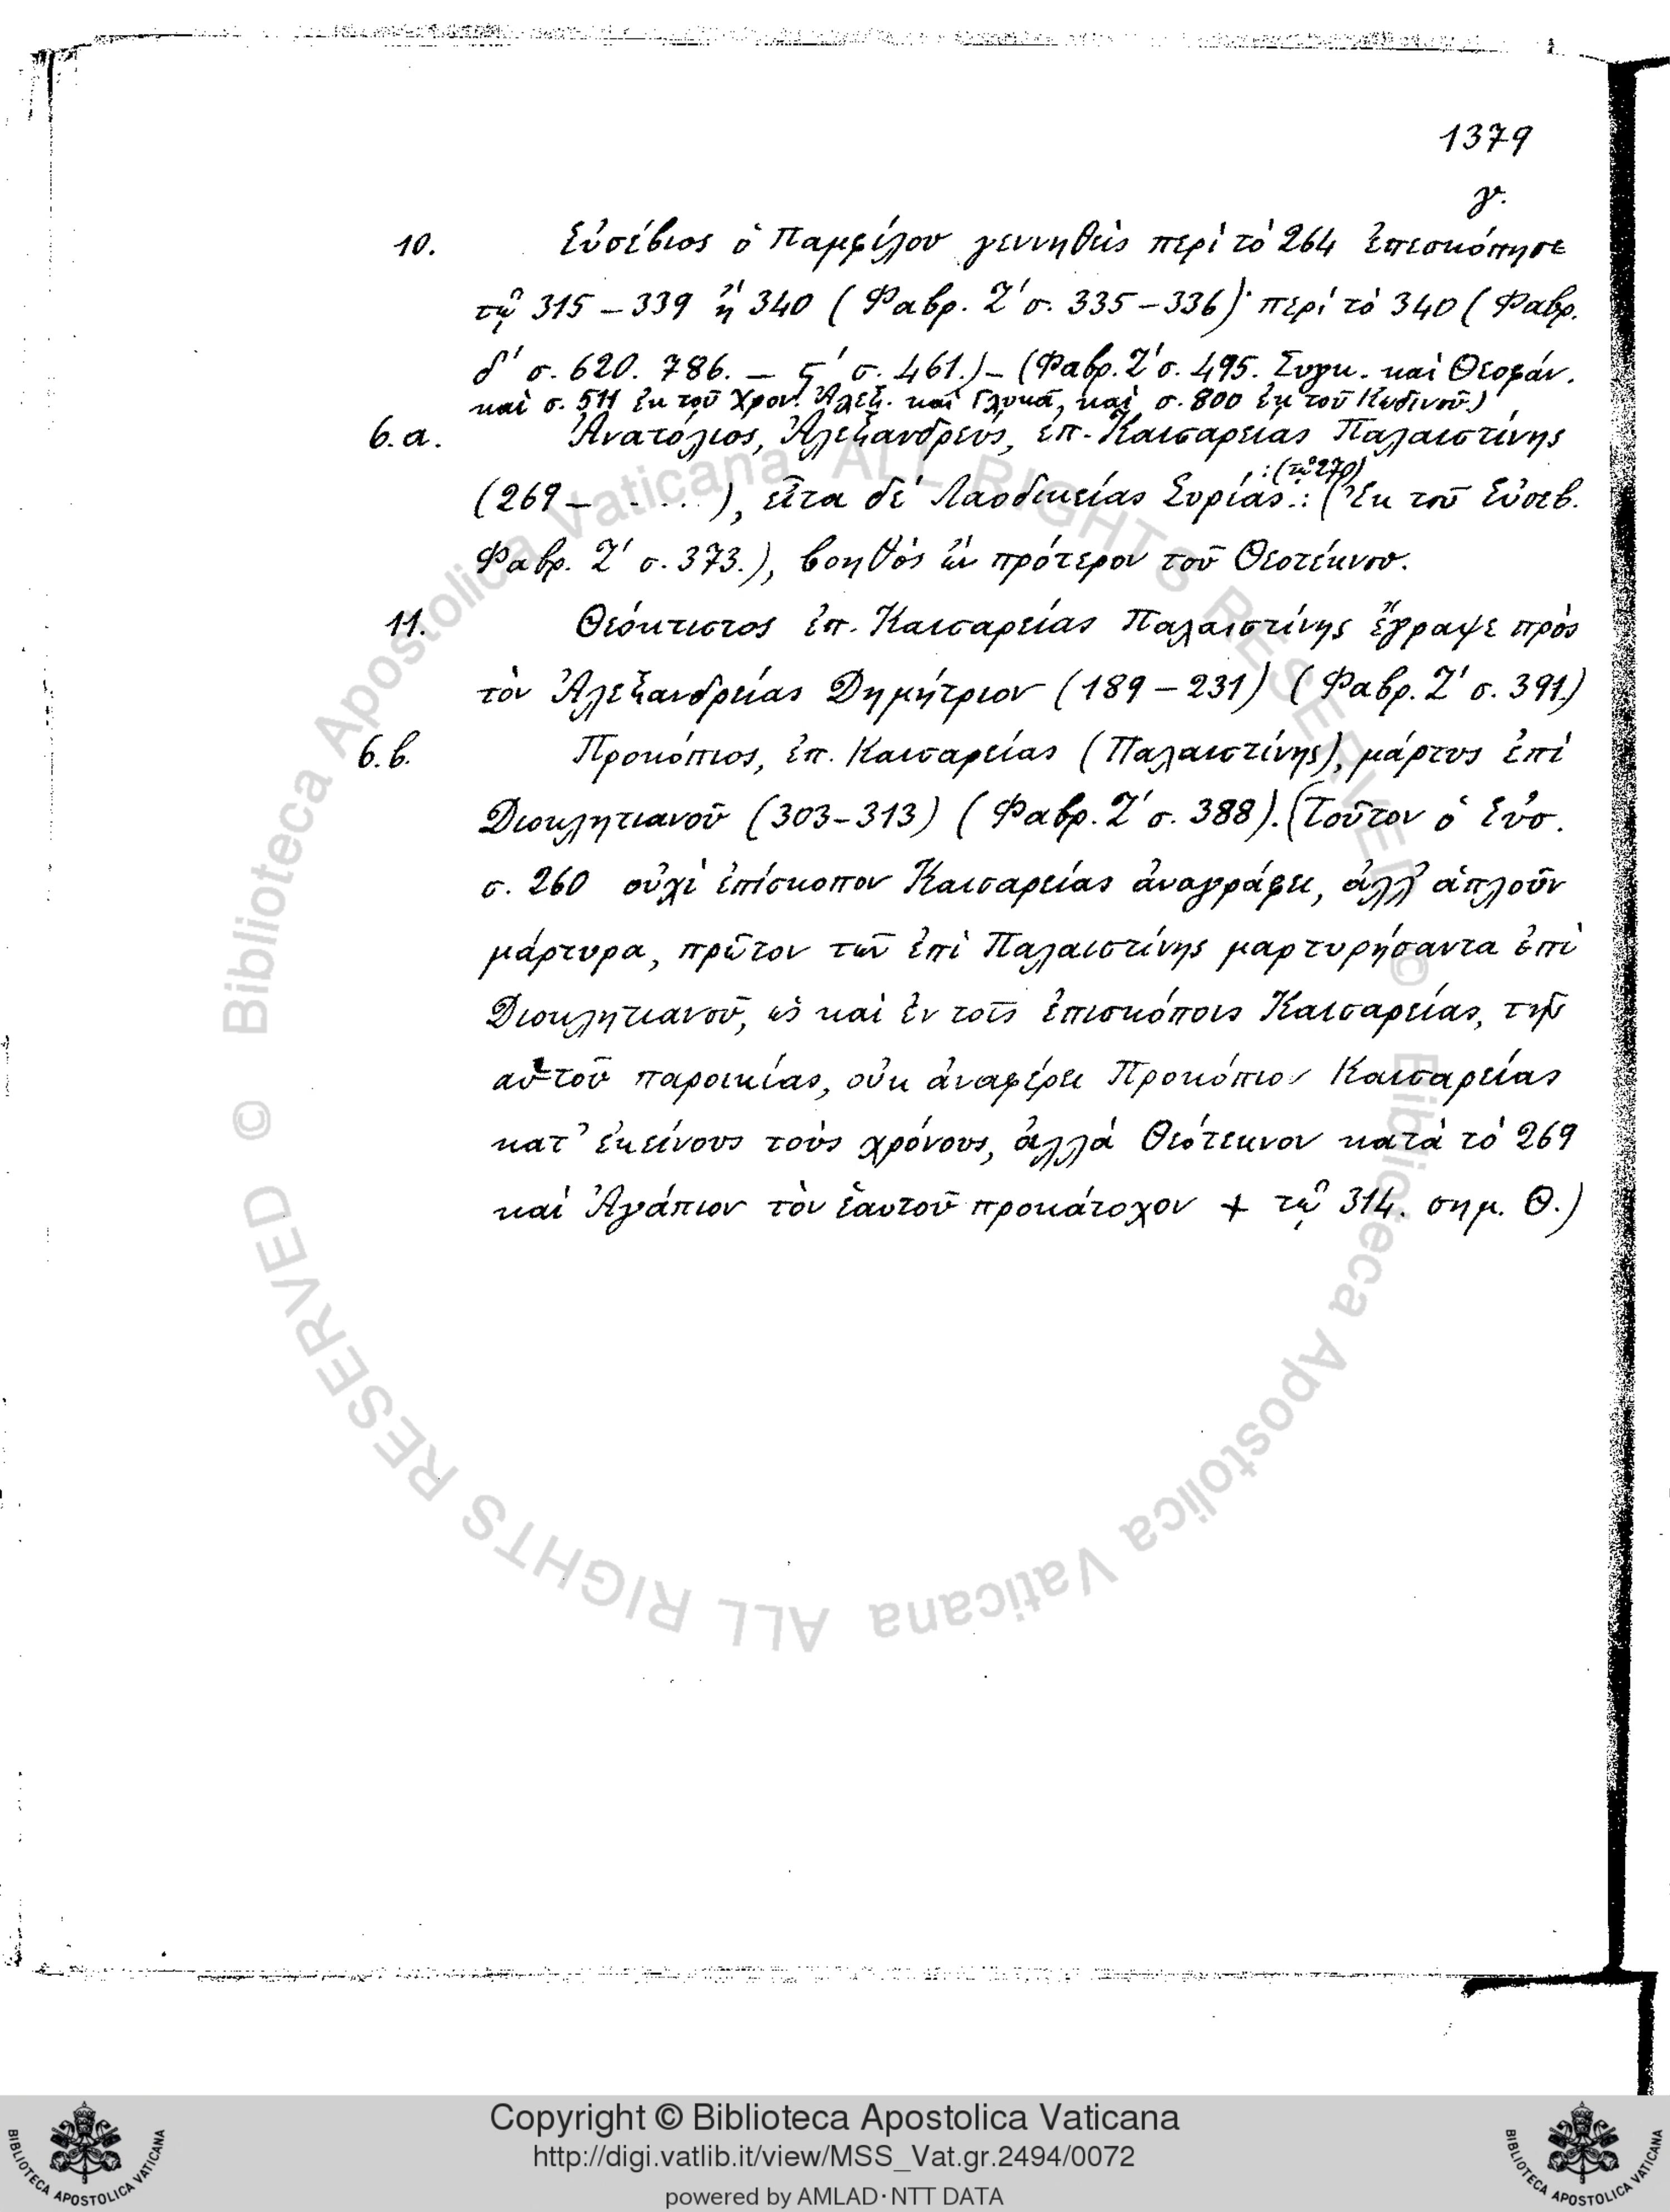 1379
γ.
10. Εὐσέβιος ὁ Παμφίλου γεννηθεὶς περὶ τὸ 264 ἐπεσκόπησε
τῷ 315 – 339 ἢ 340 (Φαβρ. Ζ' σ. 335 – 336)· περὶ τὸ 340 (Φαβρ.
δ' σ. 620. 786. – ϛ' σ. 461.) – (Φαβρ. Ζ' σ. 495. Συγκ. καὶ Θεοφάν.
καὶ σ. 511 ἐκ τοῦ Χρον. Ἀλεξ. καὶ Γλυκᾶ, καὶ σ. 800 ἐκ τοῦ Κωδινοῦ.)
6.α. Ἀνατόλιος, Ἀλεξανδρεύς, ἐπ. Καισαρείας Παλαιστίνης
: (τῷ 270)
(269 – . . . .), εἶτα δὲ Λαοδικείας Συρίας .: (Ἐκ τοῦ Εὐσεβ.
Φαβρ. Ζ' σ. 373.), βοηθὸς ὢν πρότερον τοῦ Θεοτέκνου.
11. Θεόκτιστος ἐπ. Καισαρείας Παλαιστίνης ἔγραψε πρὸς
τὸν Ἀλεξανδρείας Δημήτριον (189 – 231) (Φαβρ. Ζ' σ. 391.)
6.β. Προκόπιος, ἐπ. Καισαρείας (Παλαιστίνης), μάρτυς ἐπὶ
Διοκλητιανοῦ (303 – 313) (Φαβρ. Ζ' σ. 388). (Τοῦτον ὁ Εὐσ.
σ. 260 οὐχὶ ἐπίσκοπον Καισαρείας ἀναγράφει, ἀλλ' ἁπλοῦν
μάρτυρα, πρῶτον τῶν ἐπὶ Παλαιστίνης μαρτυρήσαντα ἐπὶ
Διοκλητιανοῦ, ὡς καὶ ἐν τοῖς ἐπισκόποις Καισαρείας, τῆς
αὐτοῦ παροικίας, οὐκ ἀναφέρει Προκόπιον Καισαρείας
κατ' ἐκείνους τοὺς χρόνους, ἀλλὰ Θεότεκνον κατὰ τὸ 269
καὶ Ἀγάπιον τὸν ἑαυτοῦ προκάτοχον + τῷ 314. σημ. Θ.)
© Biblioteca Apostolica Vaticana ALL RIGHTS RESERVED
© Biblioteca Apostolica Vaticana ALL RIGHTS RESERVED
BIBLIOTECA APOSTOLICA VATICANA
Copyright © Biblioteca Apostolica Vaticana
http://digi.vatlib.it/view/MSS_Vat.gr.2494/0072
powered by AMLAD·NTT DATA
BIBLIOTECA APOSTOLICA VATICANA